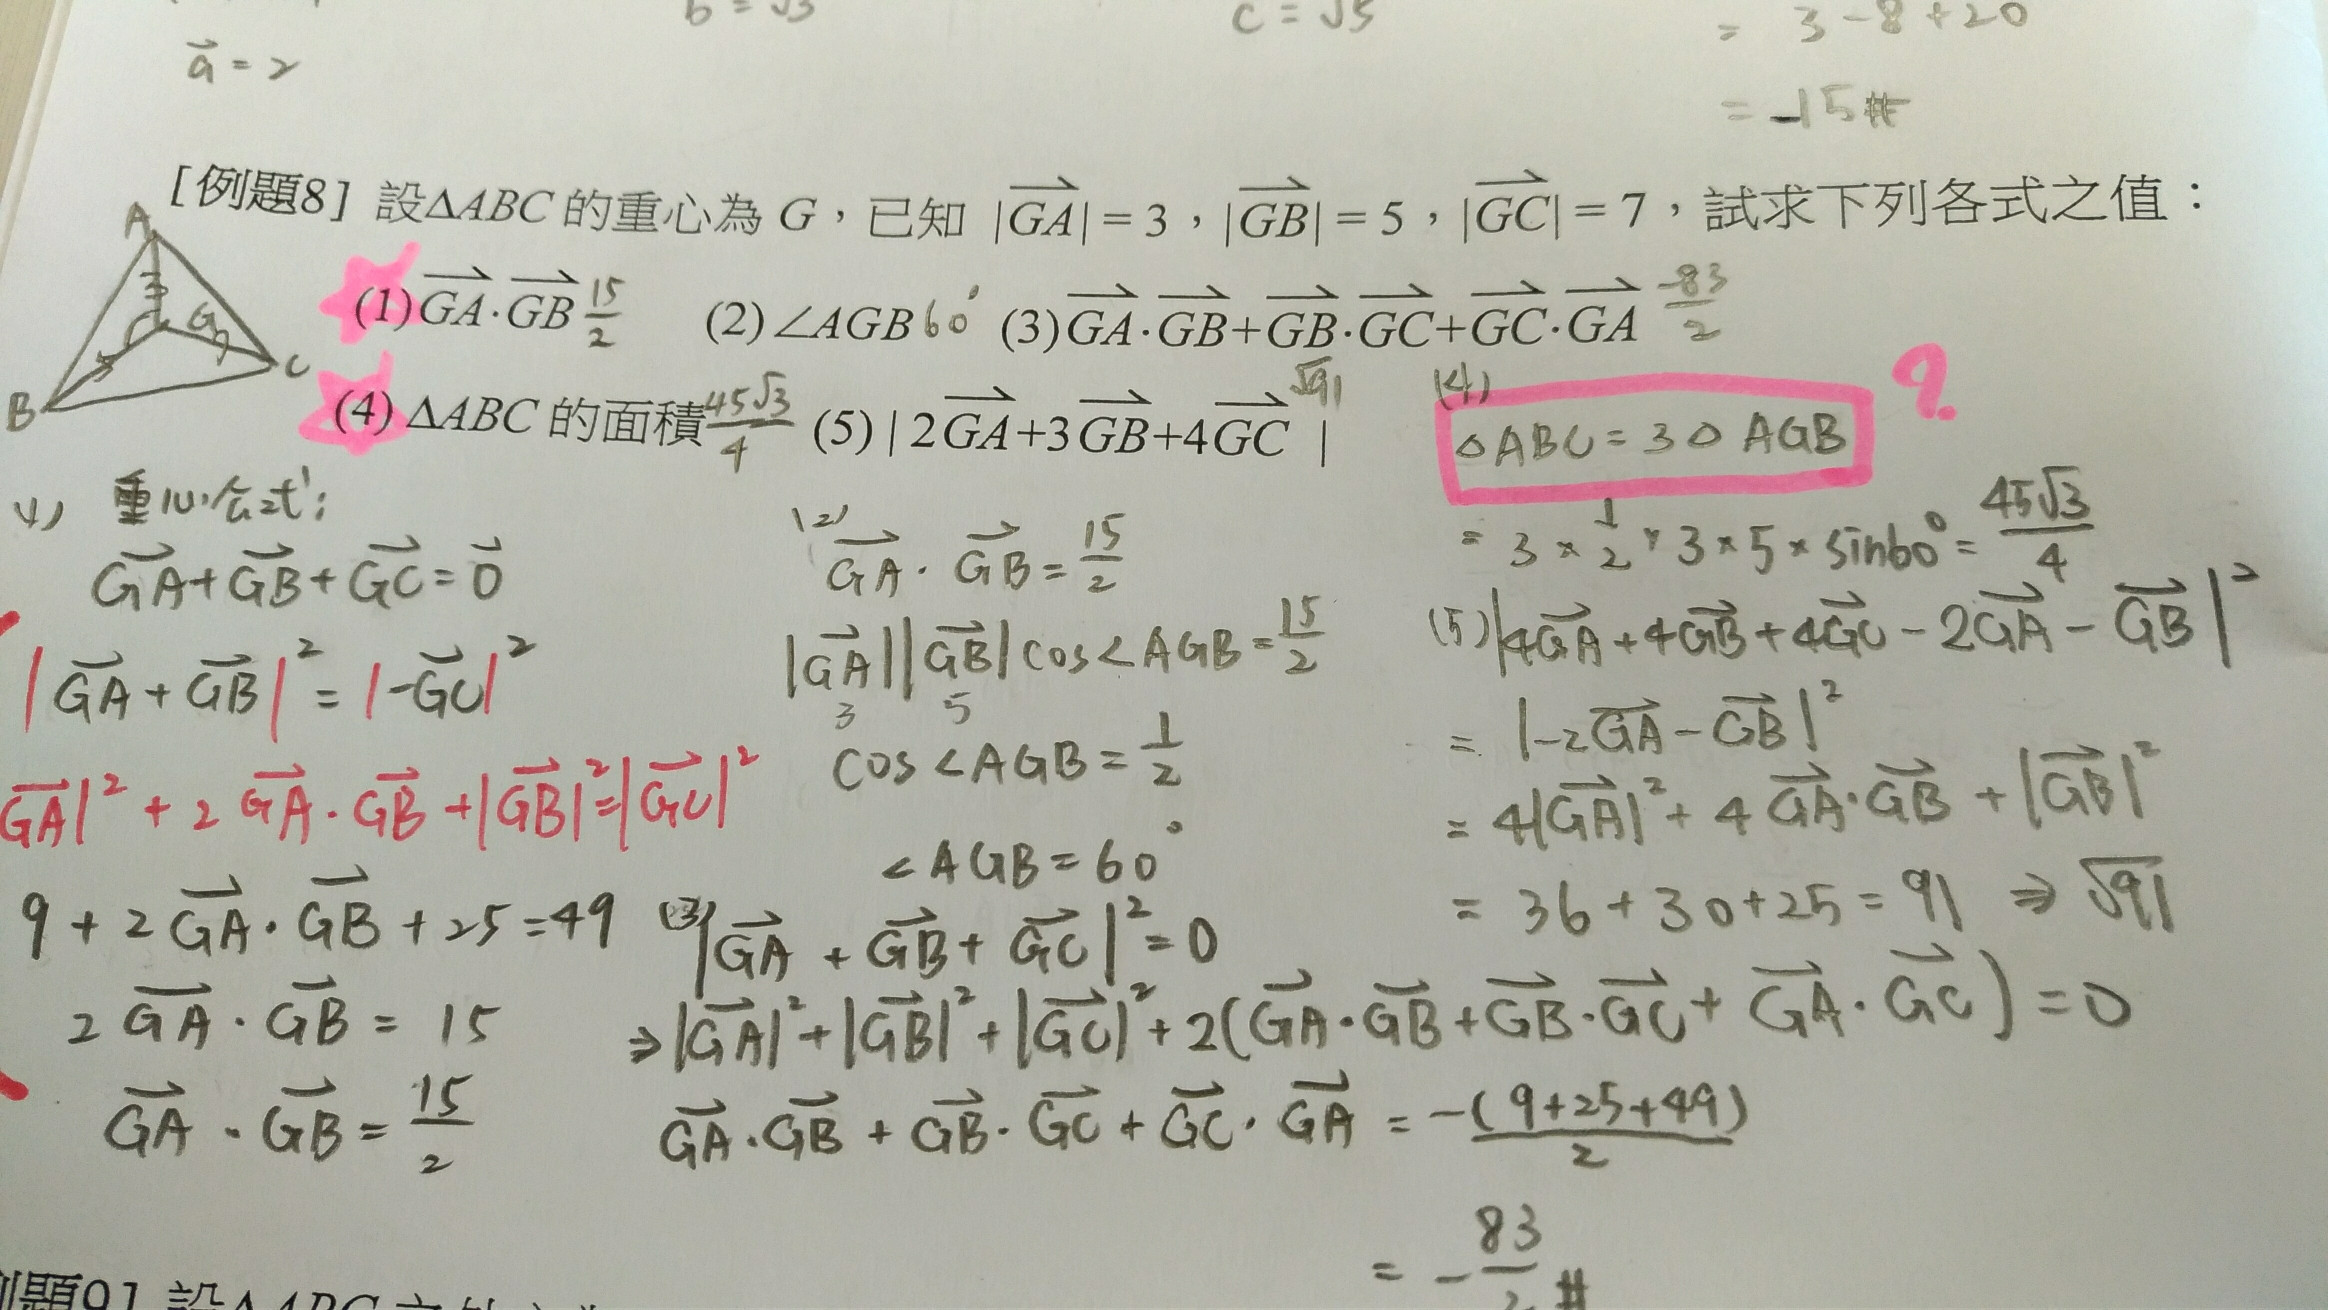 b = √3
c = √5
= 3 - 8 + 20
a⃗ = 2
= -15#
[例題8] 設ΔABC 的重心為 G，已知 |GA⃗| = 3，|GB⃗| = 5，|GC⃗| = 7，試求下列各式之值：
(1) GA⃗·GB⃗ 15/2 (2) ∠AGB 60° (3) GA⃗·GB⃗+GB⃗·GC⃗+GC⃗·GA⃗ -83/2
(4) ΔABC 的面積 45√3/4 (5) | 2GA⃗+3GB⃗+4GC⃗ | √91
A
G
B
C
(1) 重心公式:
GA⃗ + GB⃗ + GC⃗ = 0⃗
|GA⃗ + GB⃗|² = |-GC⃗|²
GA⃗|² + 2 GA⃗ · GB⃗ + |GB⃗|² = |GC⃗|²
9 + 2 GA⃗ · GB⃗ + 25 = 49
2 GA⃗ · GB⃗ = 15
GA⃗ · GB⃗ = 15/2
(2)
GA⃗ · GB⃗ = 15/2
|GA⃗||GB⃗| cos∠AGB = 15/2
3 5
cos∠AGB = 1/2
∠AGB = 60°
(3) |GA⃗ + GB⃗ + GC⃗|² = 0
⇒ |GA⃗|² + |GB⃗|² + |GC⃗|² + 2(GA⃗·GB⃗ + GB⃗·GC⃗ + GA⃗·GC⃗) = 0
GA⃗·GB⃗ + GB⃗·GC⃗ + GC⃗·GA⃗ = -(9+25+49)/2
= -83/2 #
(4)
△ABC = 3△AGB ?
= 3 × 1/2 × 3 × 5 × sin60° = 45√3/4
(5) |4GA⃗ + 4GB⃗ + 4GC⃗ - 2GA⃗ - GB⃗|²
= |-2GA⃗ - GB⃗|²
= 4|GA⃗|² + 4 GA⃗·GB⃗ + |GB⃗|²
= 36 + 30 + 25 = 91 ⇒ √91
例題9] 設ΔABC